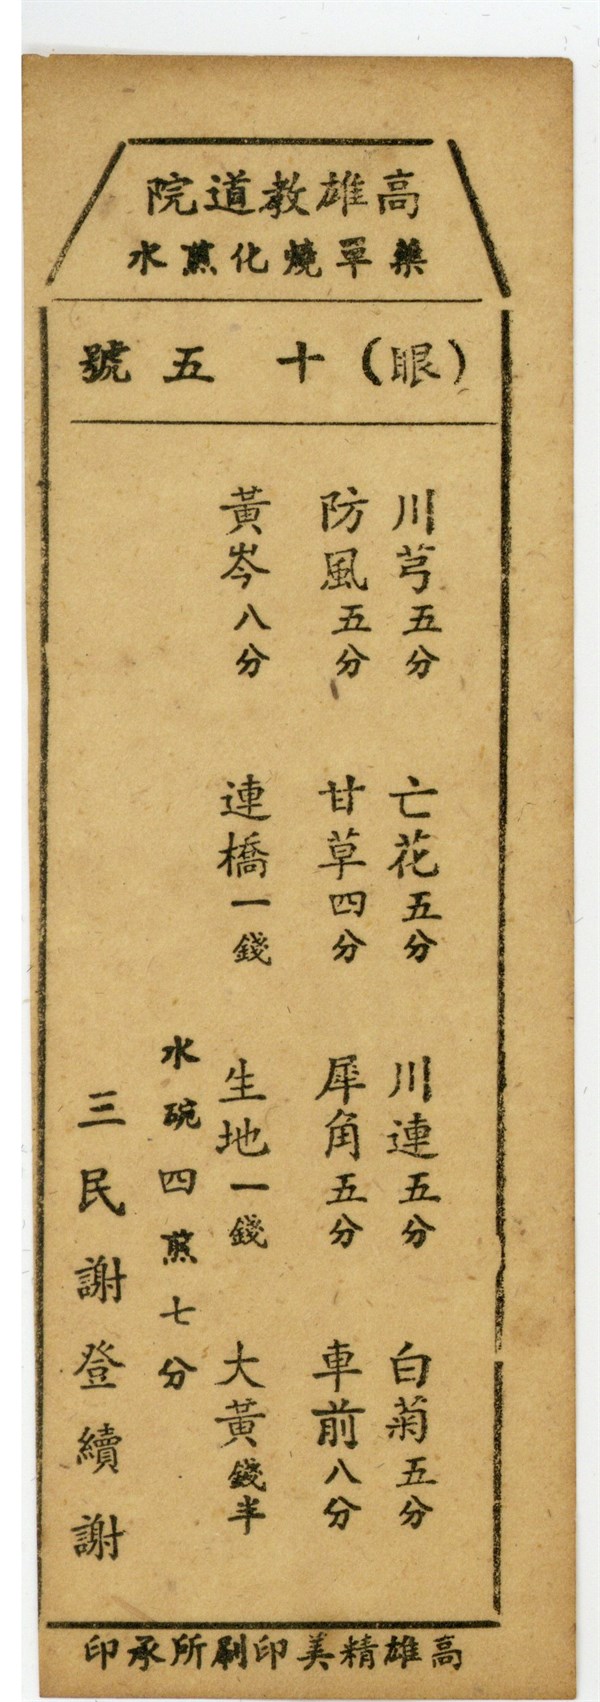 高雄教道院
藥單燒化蒸水
(眼)十五號
川芎五分 亡花五分 川連五分 白菊五分
防風五分 甘草四分 犀角五分 車前八分
黃岑八分 連橋一錢 生地一錢 大黃錢半
水碗四煎七分
三民謝登續謝
高雄精美印刷所承印